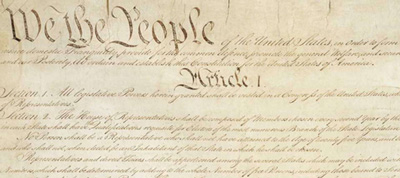 We the People
of the United States, in Order to form
insure domestic Tranquility, provide for the common defence, promote the general Welfare, and secure
and our Posterity, do ordain and establish this Constitution for the United States of America.
Article. I.
Section. 1. All legislative Powers herein granted shall be vested in a Congress of the United States, which
of Representatives.
Section. 2. The House of Representatives shall be composed of Members chosen every second Year by the
in each State shall have Qualifications requisite for Electors of the most numerous Branch of the State Legislature
No Person shall be a Representative who shall not have attained to the Age of twenty five Years, and
and who shall not, when elected, be an Inhabitant of that State in which he shall be chosen.
Representatives and direct Taxes shall be apportioned among the several States which may be included
Numbers, which shall be determined by adding to the whole Number of free Persons, including those bound to